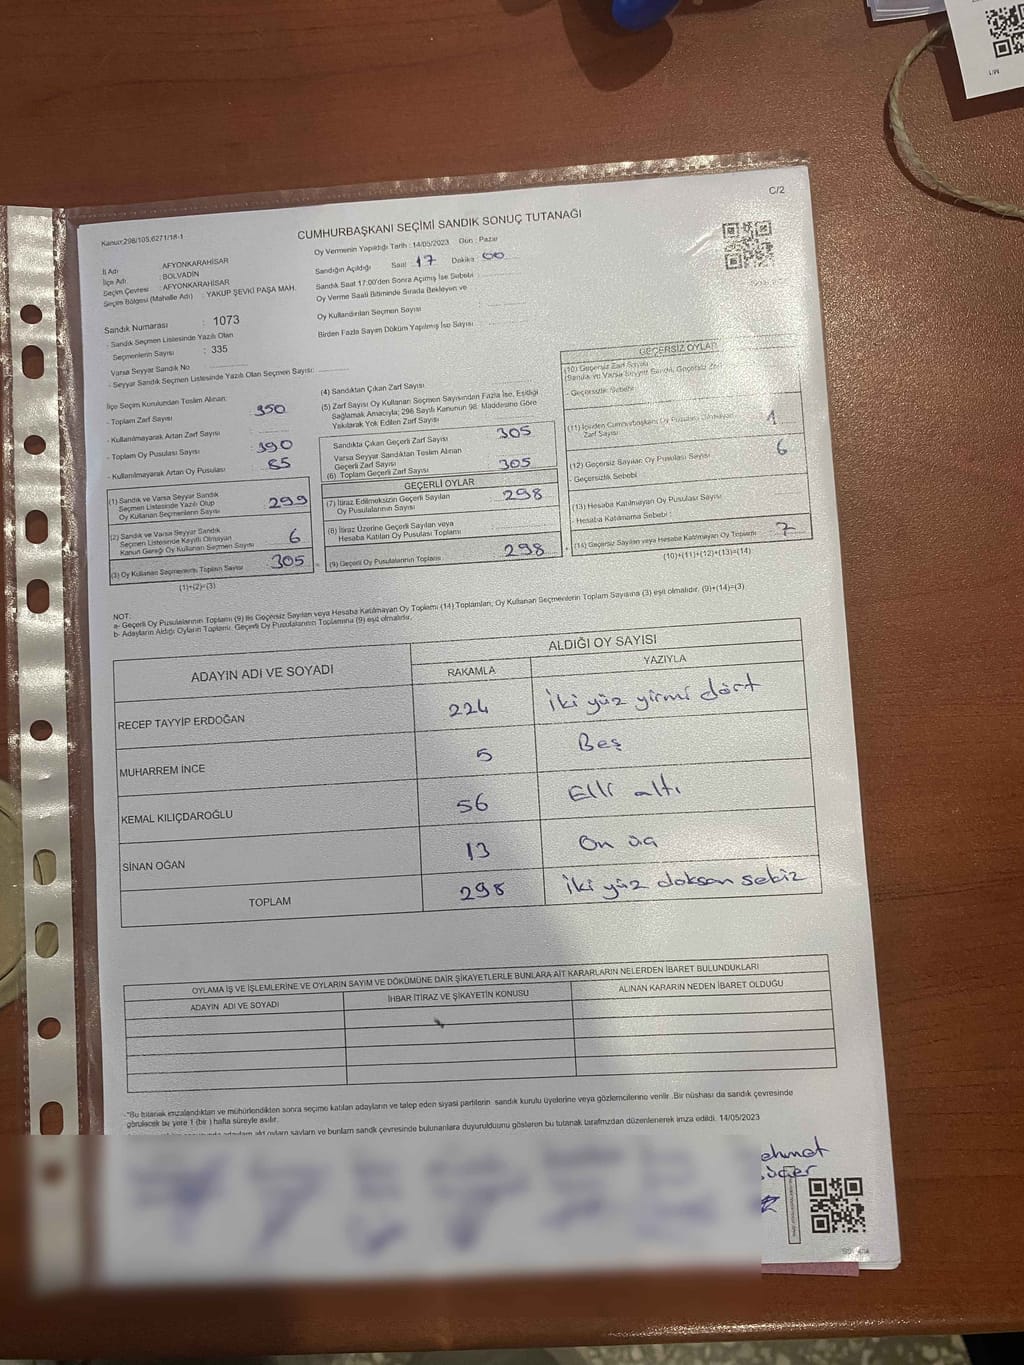 M/1
C/2
Kanun:298/105,6271/18-1
CUMHURBAŞKANI SEÇİMİ SANDIK SONUÇ TUTANAĞI
Oy Vermenin Yapıldığı Tarih : 14/05/2023 Gün : Pazar
İl Adı : AFYONKARAHİSAR
İlçe Adı : BOLVADİN
Seçim Çevresi : AFYONKARAHİSAR
Seçim Bölgesi (Mahalle Adı) : YAKUP ŞEVKİ PAŞA MAH.
Sandığın Açıldığı Saat 17 Dakika 00
Sandık Saat 17.00'den Sonra Açımış İse Sebebi
Oy Verme Saati Bitiminde Sırada Bekleyen ve
Oy Kullandırılan Seçmen Sayısı
Birden Fazla Sayım Döküm Yapılmış İse Sayısı :
Sandık Numarası : 1073
- Sandık Seçmen Listesinde Yazılı Olan
Seçmenlerin Sayısı : 335
Varsa Seyyar Sandık No
- Seyyar Sandık Seçmen Listesinde Yazılı Olan Seçmen Sayısı:
İlçe Seçim Kurulundan Teslim Alınan:
- Toplam Zarf Sayısı : 350
- Kullanılmayarak Artan Zarf Sayısı :
- Toplam Oy Pusulası Sayısı : 390
- Kullanılmayarak Artan Oy Pusulası : 85
(1) Sandık ve Varsa Seyyar Sandık
Seçmen Listesinde Yazılı Olup
Oy Kullanan Seçmenlerin Sayısı : 299
(2) Sandık ve Varsa Seyyar Sandık
Seçmen Listesinde Kayıtlı Olmayan
Kanun Gereği Oy Kullanan Seçmen Sayısı : 6
(3) Oy Kullanan Seçmenlerin Toplam Sayısı : 305
(1)+(2)=(3)
(4) Sandıktan Çıkan Zarf Sayısı
(5) Zarf Sayısı Oy Kullanan Seçmen Sayısından Fazla İse, Eşitliği
Sağlamak Amacıyla; 298 Sayılı Kanunun 98. Maddesine Göre
Yakılarak Yok Edilen Zarf Sayısı
Sandıkta Çıkan Geçerli Zarf Sayısı : 305
Varsa Seyyar Sandıktan Teslim Alınan
Geçerli Zarf Sayısı
(6) Toplam Geçerli Zarf Sayısı : 305
GEÇERLİ OYLAR
(7) İtiraz Edilmeksizin Geçerli Sayılan
Oy Pusulalarının Sayısı : 298
(8) İtiraz Üzerine Geçerli Sayılan veya
Hesaba Katılan Oy Pusulası Toplamı
(9) Geçerli Oy Pusulalarının Toplamı : 298
GEÇERSİZ OYLAR
(10) Geçersiz Zarf Sayısı
- Geçersizlik Sebebi
(11) İçinden Cumhurbaşkanı Oy Pusulası Çıkmayan
Zarf Sayısı : 1
(12) Geçersiz Sayılan Oy Pusulası Sayısı : 6
- Geçersizlik Sebebi
(13) Hesaba Katılmayan Oy Pusulası Sayısı
- Hesaba Katılmama Sebebi :
(14) Geçersiz Sayılan veya Hesaba Katılmayan Oy Toplamı : 7
(10)+(11)+(12)+(13)=(14)
NOT:
a- Geçerli Oy Pusulalarının Toplamı (9) ile Geçersiz Sayılan veya Hesaba Katılmayan Oy Toplamı (14) Toplamları, Oy Kullanan Seçmenlerin Toplam Sayısına (3) eşit olmalıdır. (9)+(14)=(3)
b- Adayların Aldığı Oyların Toplamı, Geçerli Oy Pusulalarının Toplamına (9) eşit olmalıdır.
ADAYIN ADI VE SOYADI
ALDIĞI OY SAYISI
RAKAMLA YAZIYLA
RECEP TAYYİP ERDOĞAN 224 İki yüz yirmi dört
MUHARREM İNCE 5 Beş
KEMAL KILIÇDAROĞLU 56 Elli altı
SİNAN OĞAN 13 On üç
TOPLAM 298 İki yüz doksan sekiz
OYLAMA İŞ VE İŞLEMLERİNE VE OYLARIN SAYIM VE DÖKÜMÜNE DAİR ŞİKAYETLERLE BUNLARA AİT KARARLARIN NELERDEN İBARET BULUNDUKLARI
ADAYIN ADI VE SOYADI İHBAR İTİRAZ VE ŞİKAYETİN KONUSU ALINAN KARARIN NEDEN İBARET OLDUĞU
-"Bu tutanak imzalandıktan ve mühürlendikten sonra seçime katılan adayların ve talep eden siyasi partilerin sandık kurulu üyelerine veya gözlemcilerine verilir. Bir nüshası da sandık çevresinde
görülecek bir yere 1 (bir ) hafta süreyle asılır.
adayların aldığı oyların sayılarını ve bunların sandık çevresinde bulunanlara duyurulduğunu gösteren bu tutanak tarafımızdan düzenlenerek imza edildi. 14/05/2023
ehmet